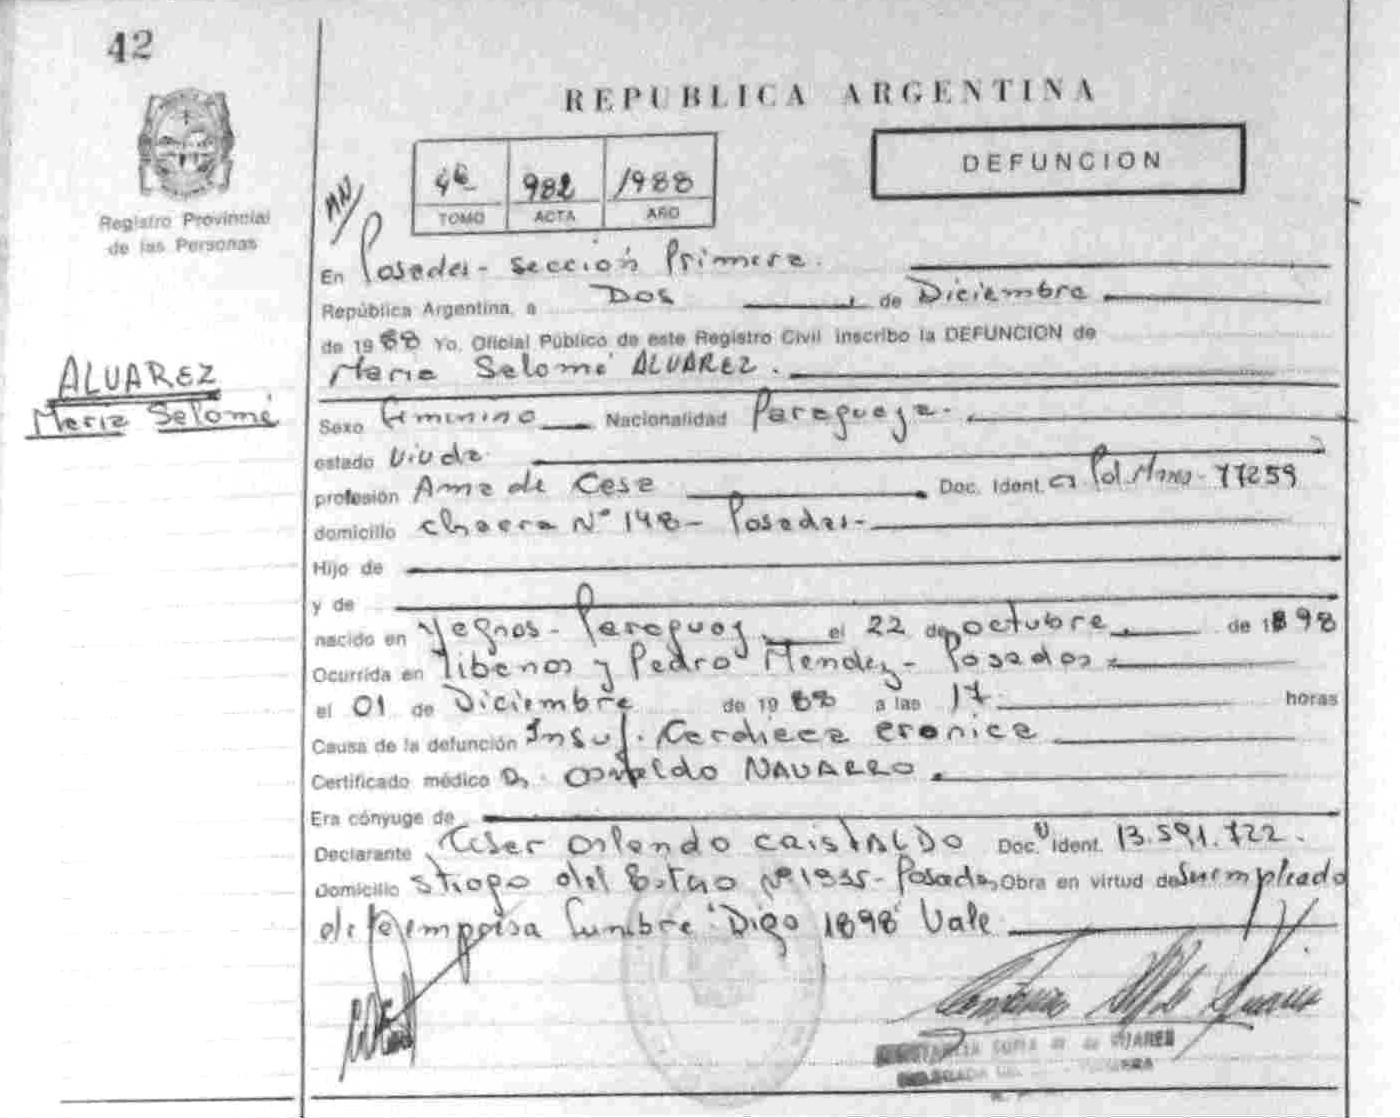 42
REPUBLICA ARGENTINA
DEFUNCION
4º 982 1988
TOMO ACTA AÑO
Registro Provincial
de las Personas
En Posadas - Sección Primera.
República Argentina, a Dos de Diciembre
de 1988 Yo, Oficial Público de este Registro Civil inscribo la DEFUNCION de
Maria Salomé ALVAREZ.
ALVAREZ
Maria Salomé
Sexo femenino Nacionalidad Paraguaya.
estado Viuda
profesión Ama de Casa Doc. Ident. Pol. Mnes. 77259
domicilio chacra Nº 148 - Posadas -
Hijo de
y de
nacido en Yegros - Paraguay el 22 de octubre de 1898
Ocurrida en y Pedro Mendez - Posadas
el 01 de Diciembre de 1988 a las 17 horas
Causa de la defunción Insuf. Cardiaca cronica
Certificado médico Dr. Osvaldo NAVARRO.
Era cónyuge de
Declarante Cesar Orlando CRISTALDO Doc. Ident. 13.591.722.
Domicilio del Estero Nº - Posadas, Obra en virtud de Ser empleado
de la empresa "Digo 1898" Vale